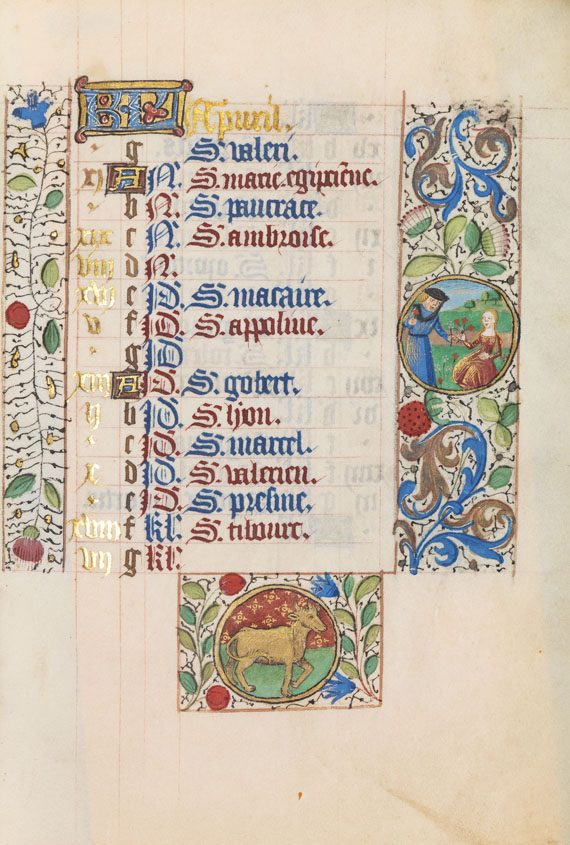 KL Apuril.
g S. valeri.
xj A N. S. marie egipciene.
b N. S. pancrace.
xix c N. S. ambroise.
viij d N.
xvj e ID. S. macaire.
v f ID. S. appoline.
g ID
xiij A ID. S. gobert.
ij b ID. S. lyon.
c ID. S. marcel.
x d ID. S. valerien.
e ID. S. presme.
xviij f kl. S. tibourc.
vij g kl.